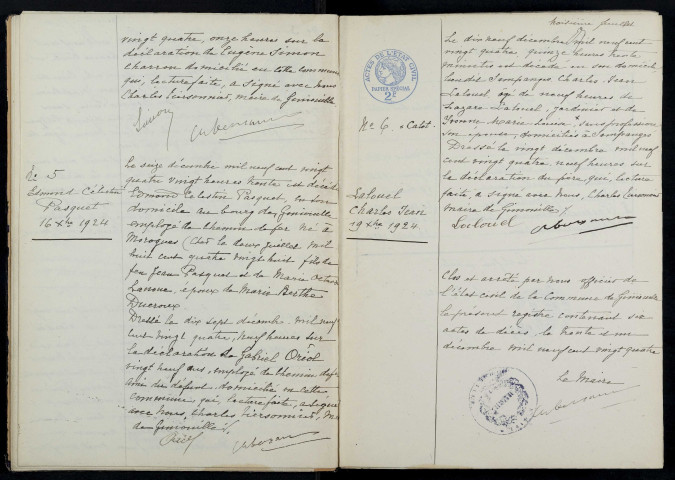 vingt quatre, onze heures sur la
déclaration de Eugène Simon
charron domicilié en cette commune
qui, lecture faite, a signé avec nous
Charles Tiersonnier, maire de Gimouille
Simon
No 5
Edmond Célestin
Pasquet
16 Xbre 1924
Le seize décembre mil neuf cent vingt
quatre vingt heures trente est décédé
Edmond Célestin Pasquet, en son
domicile au bourg de Gimouille
employé de chemin de fer né à
Morogues (Cher) le deux juillet mil
huit cent quatre vingt huit fils de
feu Jean Pasquet et de Marie
Lanoue, époux de Marie Berthe
Ducroux.
Dressé le dix sept décembre mil neuf
cent vingt quatre, neuf heures sur
la déclaration de Gabriel Oréol
vingt neuf ans, employé de chemin de fer
ami du défunt domicilié en cette
commune qui, lecture faite, a signé
avec nous, Charles Tiersonnier, Maire
de Gimouille
troisième feuillet
ACTES DE L'ETAT CIVIL
PAPIER SPECIAL
2F
No 6
Lalouel
Charles Jean
19 Xbre 1924
Le dix neuf décembre mil neuf cent
vingt quatre quinze heures trente
minutes est décédé en son domicile
Charles Jean
Lalouel âgé de neuf heures de
Lazare Lalouel, jardinier et de
Yvonne Marie sans profession
son épouse, domiciliés à
Dressé le vingt décembre mil neuf
cent vingt quatre neuf heures sur
la déclaration du père qui, lecture
faite, a signé avec nous, Charles Tiersonnier
maire de Gimouille
Lalouel
Clos et arrêté par nous officier de
l'état civil de la Commune de Gimouille
le présent registre contenant six
actes de décès, le trente et un
décembre mil neuf cent vingt quatre
Le Maire